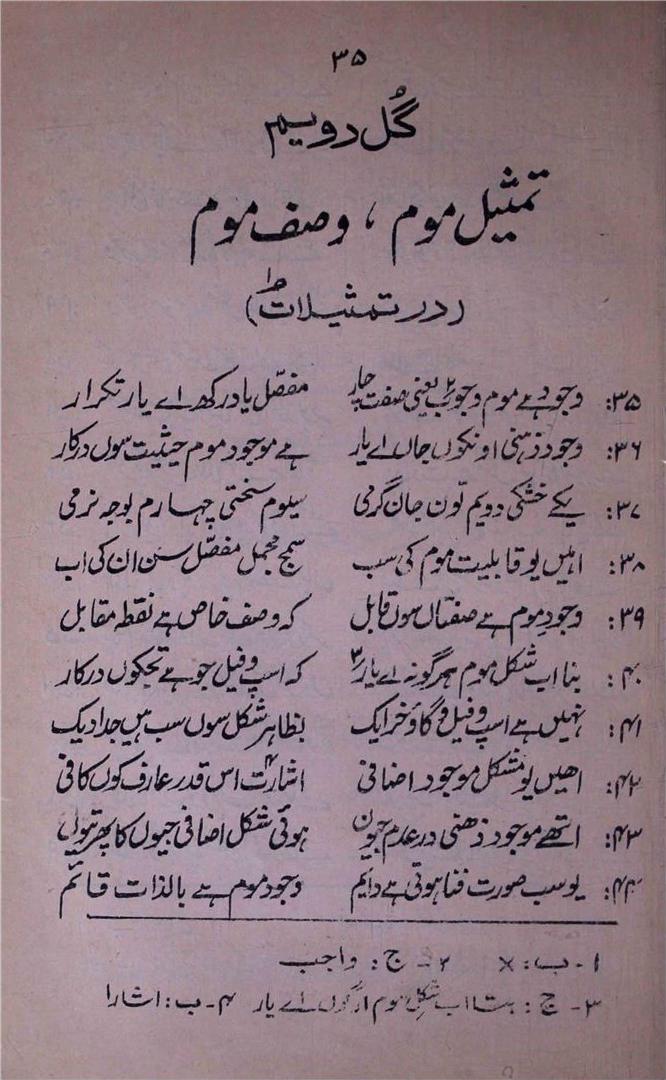 ۳۵
گُل دویم
تمثیل موم ، وصف موم
(در تمثیلات۱)
۳۵: وجود ہے موم وجوب۲ یعنی صفت چار مفصّل یاد رکھ اے یار تکرار
۳۶: وجود ذہنی اونکوں جاں اے یار ہے موجود موم حیثیت سوں درکار
۳۷: یکے خشکی دویم توں جان گرمی سیوم سختی چہارم بوجہ نرمی
۳۸: اہیں یو قابلیت موم کی سب سمج مجمل مفصّل سن ان کی اب
۳۹: وجودِ موم ہے صفتاں سوں قابل کہ وصف خاص ہے نقطہ مقابل
۴۰: بنا اب شکل موم ہر گونہ اے یار۳ کہ اسپ و فیل جو ہے تجکوں درکار
۴۱: نہیں ہے اسپ و فیل و گاؤ خر ایک بظاہر شکل سوں سب ہیں جدا دیک
۴۲: اھیں یو مشکل موجود اضافی اشارت۴ اس قدر عارف کوں کافی
۴۳: اتھے موجود ذھنی در عدم جیون ہوئی شکل اضافی جیوں کا پھر تیوں
۴۴: یو سب صورت فنا ہوتی ہے دایم وجود موم ہے بالذات قائم
۱- ب: × ۲- ج: واجب
۳- ج: بتا اب شکلِ موم از کوں اے یار ۴- ب: اشارا